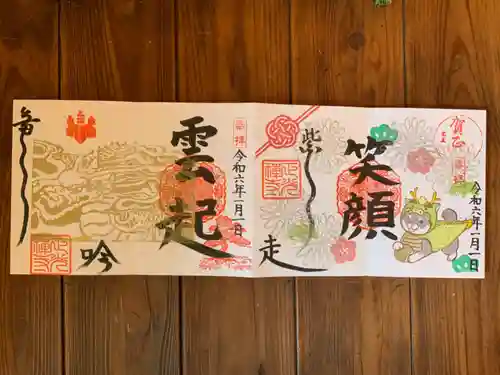 賀正
奉拝
令和六年一月一日
笑顔
走
奉拝
令和六年一月一日
雲起
竜
吟